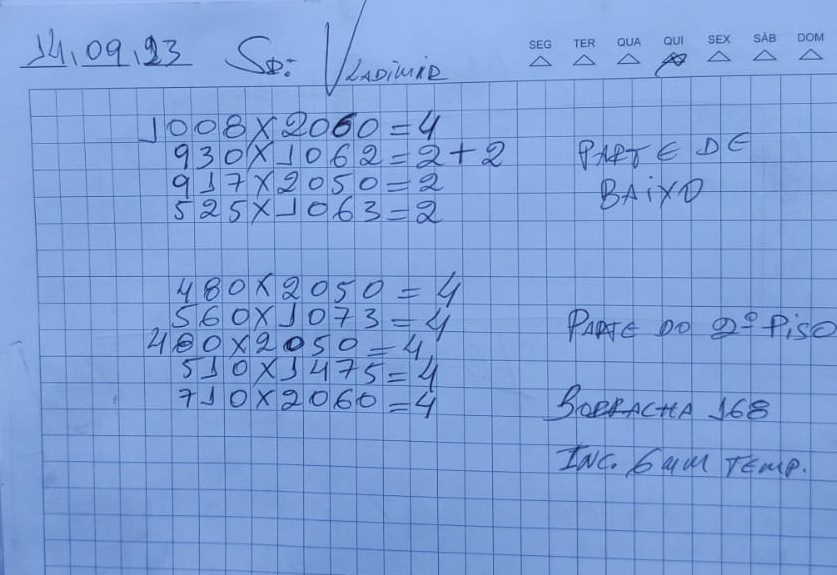 14.09.23 Sr: Vladimir
SEG TER QUA QUI SEX SÁB DOM
1008X2060=4
930X1062=2+2
917X2050=2
525X1063=2
PARTE DE
BAIXO
480X2050=4
560X1073=4
480X2050=4
510X1475=4
710X2060=4
PARTE DO 2º PISO
BORRACHA 168
INC. 6MM TEMP.